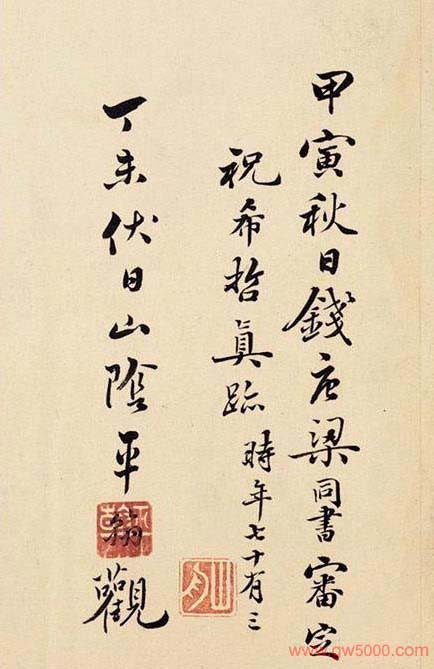 甲寅秋日錢唐梁同書審定
祝希哲真跡時年七十有三
丁未伏日山陰平翰觀
www.qw5000.com